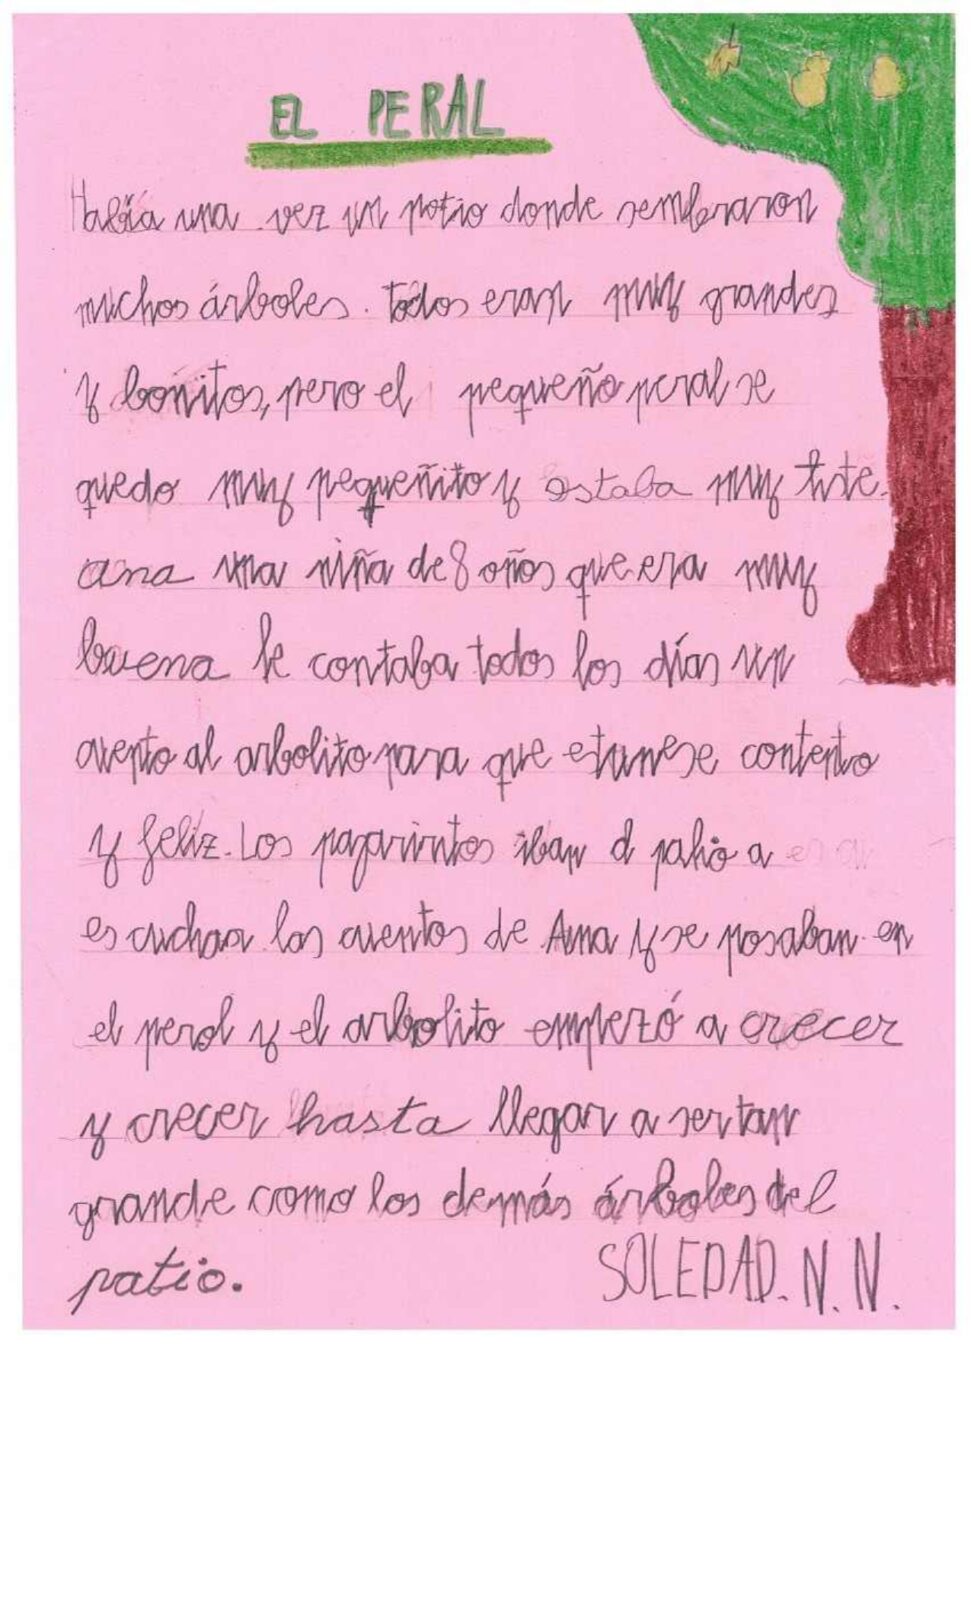 EL PERAL
Había una vez un patio donde sembraron
muchos árboles. todos eran muy grandes
y bonitos, pero el pequeño peral se
quedo muy pequeñito y estaba muy triste.
ana una niña de 8 años que era muy
buena le contaba todos los días un
cuento al arbolito para que estuviese contento
y feliz. Los pajarintos iban al patio a
escuchar los cuentos de Ana y se posaban en
el peral y el arbolito empezó a crecer
y crecer hasta llegar a ser tan
grande como los demás árboles del
patio.
SOLEDAD. N. N.